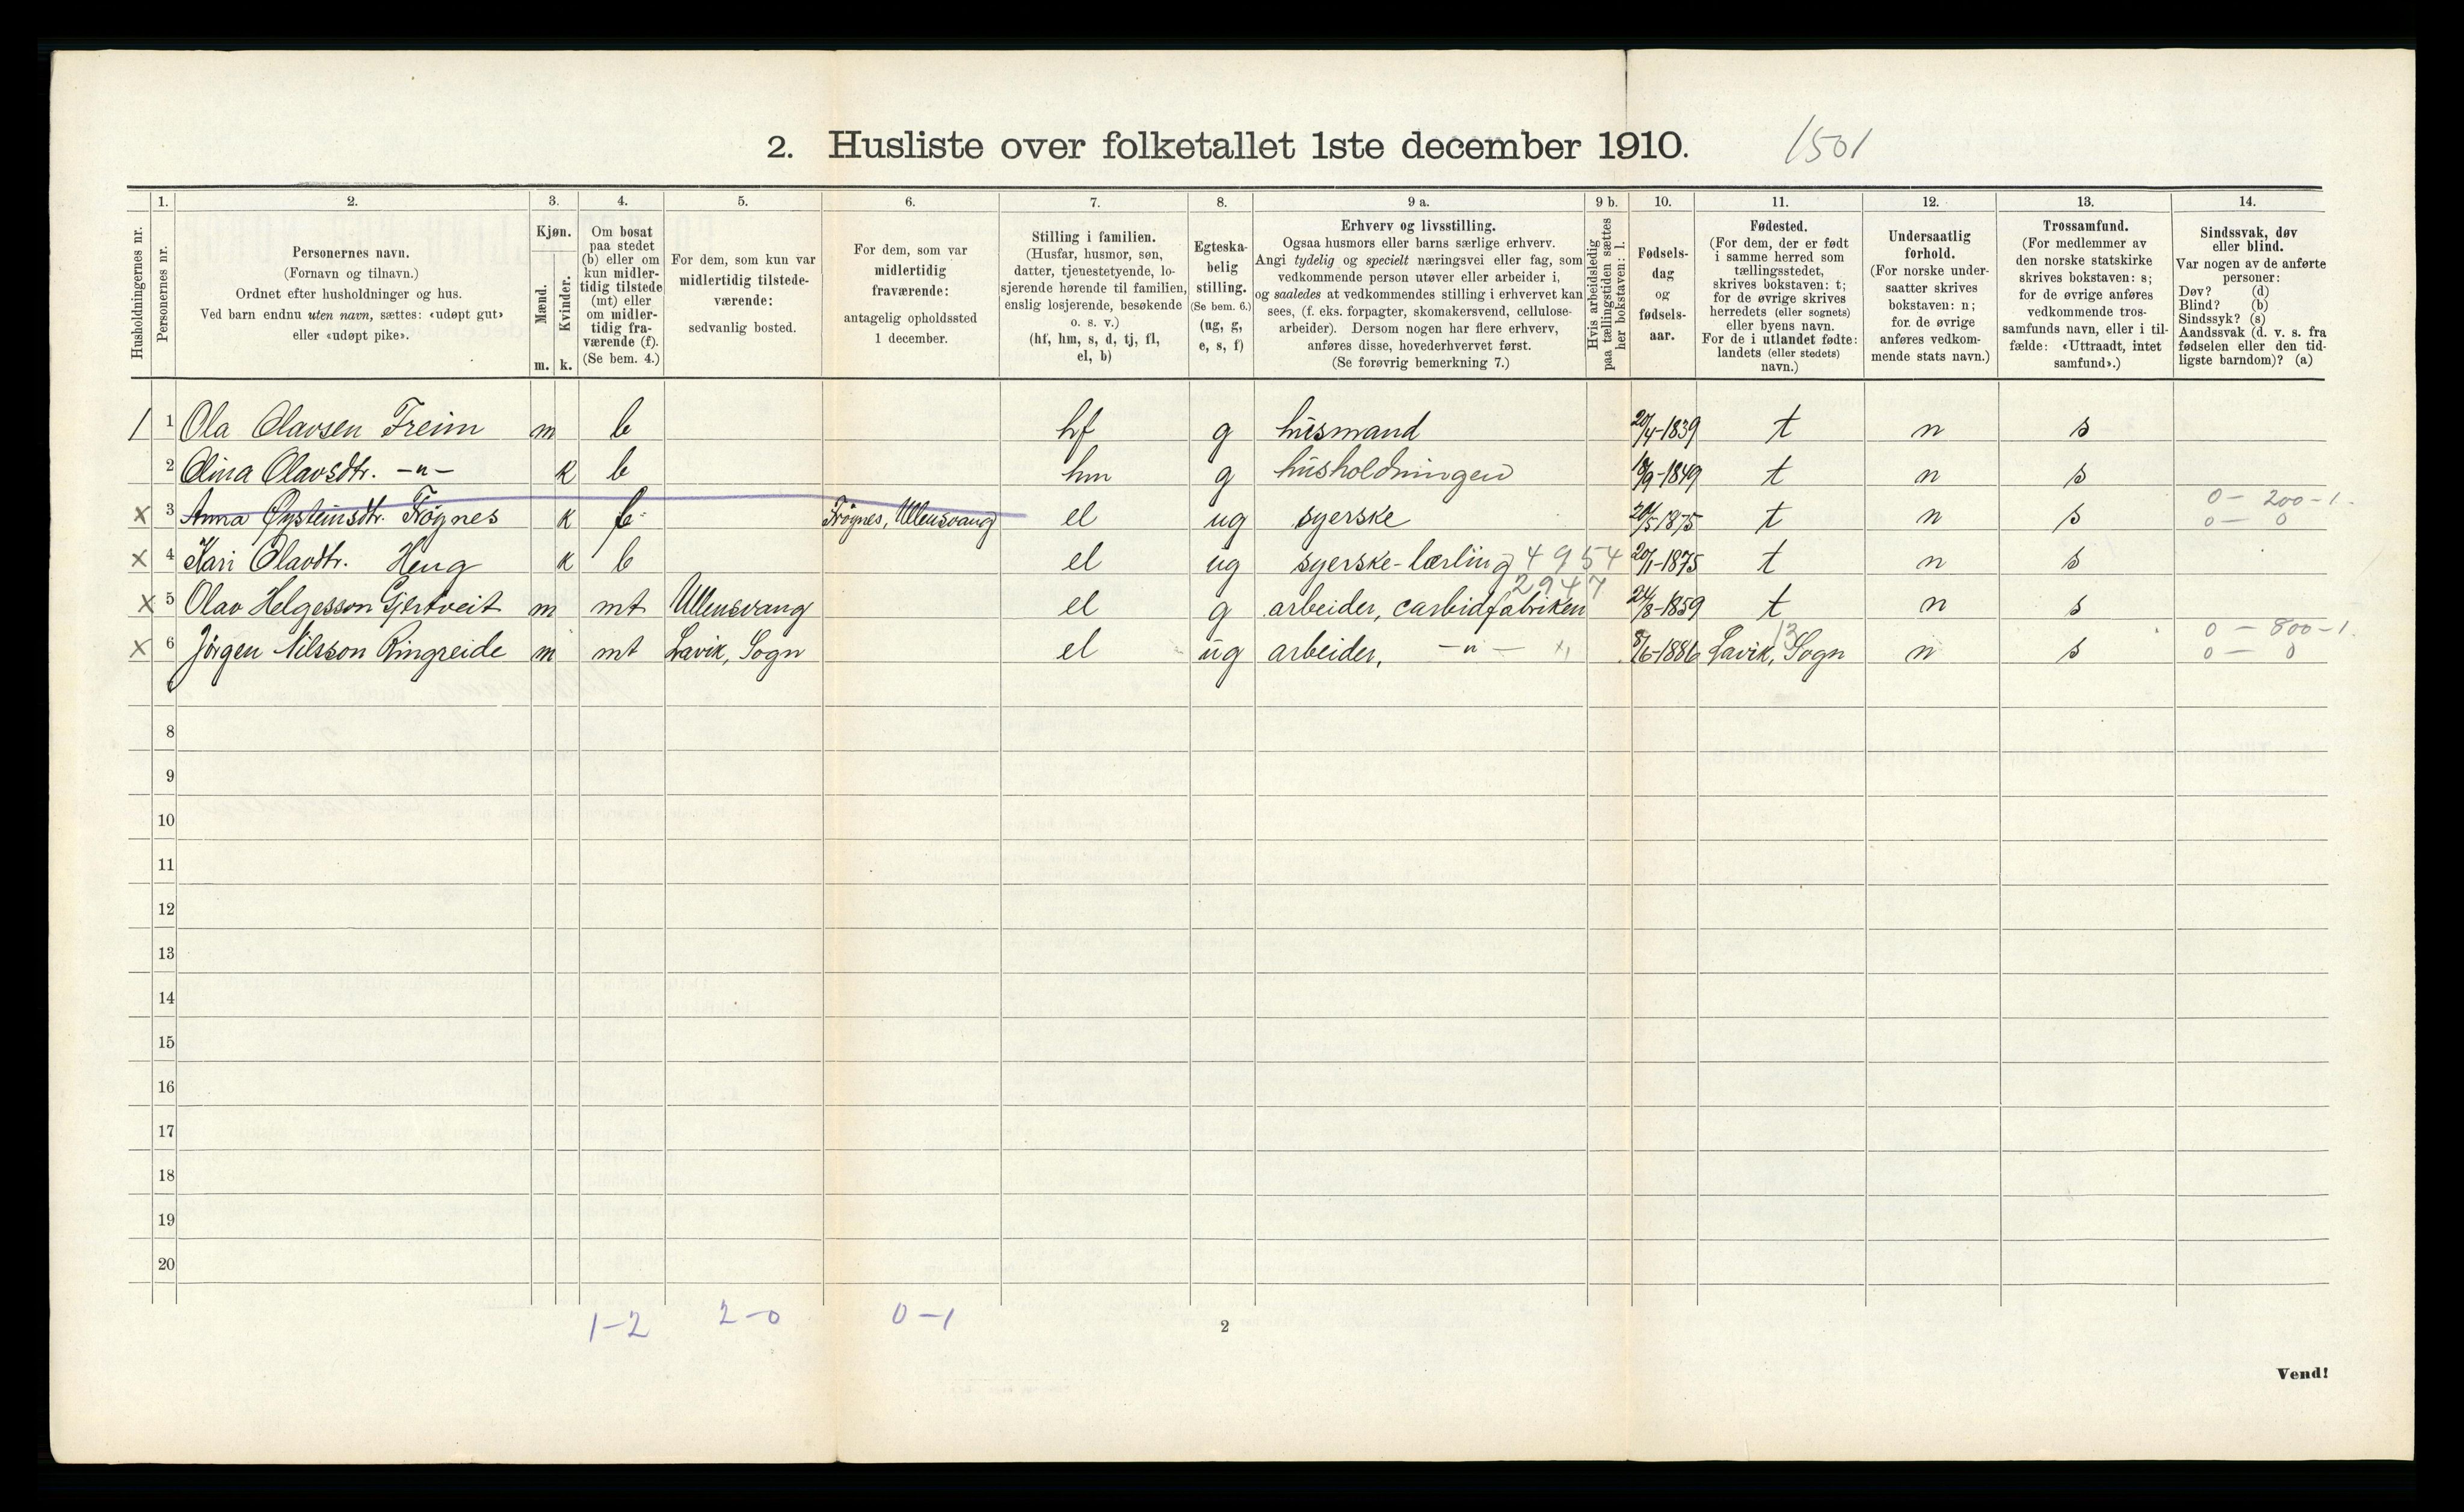 2. Husliste over folketallet 1ste december 1910. 1501
1. 2. 3. 4. 5. 6. 7. 8. 9 a. 9 b. 10. 11. 12. 13. 14.
Husholdningernes nr.
Personernes nr.
Personernes navn.
(Fornavn og tilnavn.)
Ordnet efter husholdninger og hus.
Ved barn endnu uten navn, sættes: «udøpt gut»
eller «udøpt pike».
Kjøn.
Mænd.
Kvinder.
m. k.
Om bosat
paa stedet
(b) eller om
kun midler-
tidig tilstede
(mt) eller
om midler-
tidig fra-
værende (f).
(Se bem. 4.)
For dem, som kun var
midlertidig tilstede-
værende:
sedvanlig bosted.
For dem, som var
midlertidig
fraværende:
antagelig opholdssted
1 december.
Stilling i familien.
(Husfar, husmor, søn,
datter, tjenestetyende, lo-
sjerende hørende til familien,
enslig losjerende, besøkende
o. s. v.)
(hf, hm, s, d, tj, fl,
el, b)
Egteska-
belig
stilling.
(Se bem. 6.)
(ug, g,
e, s, f)
Erhverv og livsstilling.
Ogsaa husmors eller barns særlige erhverv.
Angi tydelig og specielt næringsvei eller fag, som
vedkommende person utøver eller arbeider i,
og saaledes at vedkommendes stilling i erhvervet kan
sees, (f. eks. forpagter, skomakersvend, cellulose-
arbeider). Dersom nogen har flere erhverv,
anføres disse, hovederhvervet først.
(Se forøvrig bemerkning 7.)
Hvis arbeidsledig
paa tællingstiden sættes
her bokstaven: l.
Fødsels-
dag
og
fødsels-
aar.
Fødested.
(For dem, der er født
i samme herred som
tællingsstedet,
skrives bokstaven: t;
for de øvrige skrives
herredets (eller sognets)
eller byens navn.
For de i utlandet fødte:
landets (eller stedets)
navn.)
Undersaatlig
forhold.
(For norske under-
saatter skrives
bokstaven: n;
for de øvrige
anføres vedkom-
mende stats navn.)
Trossamfund.
(For medlemmer av
den norske statskirke
skrives bokstaven: s;
for de øvrige anføres
vedkommende tros-
samfunds navn, eller i til-
fælde: «Uttraadt, intet
samfund».)
Sindssvak, døv
eller blind.
Var nogen av de anførte
personer:
Døv? (d)
Blind? (b)
Sindssyk? (s)
Aandssvak (d. v. s. fra
fødselen eller den tid-
ligste barndom)? (a)
1 1 Ola Olavsen Freim m b hf g husmand 20/4-1839 t n s
2 Olina Olavsdtr. -"- k b hm g husholdningen 18/9-1849 t n s
0 - 200-1.
x 3 Anna Øysteinsdtr. Frøgnes k f Frøgnes, Ullensvang el ug syerske 20/5-1875 t n s 0 - 0
x 4 Kari Olavdtr. Heng k b el ug syerske-lærling 4954 20/11-1875 t n s
2947
x 5 Olav Helgesson Gjertveit m mt Ullensvang el g arbeider, carbidfabriken 24/8-1859 t n s
13 0 - 800-1.
x 6 Jörgen Nilsson Ringreide m mt Lavik, Sogn el ug arbeider, -"- 8/6-1886 Lavik, Sogn n s 0 - 0
8
9
10
11
12
13
14
15
16
17
18
19
20
1-2 2-0 0-1
2
Vend!